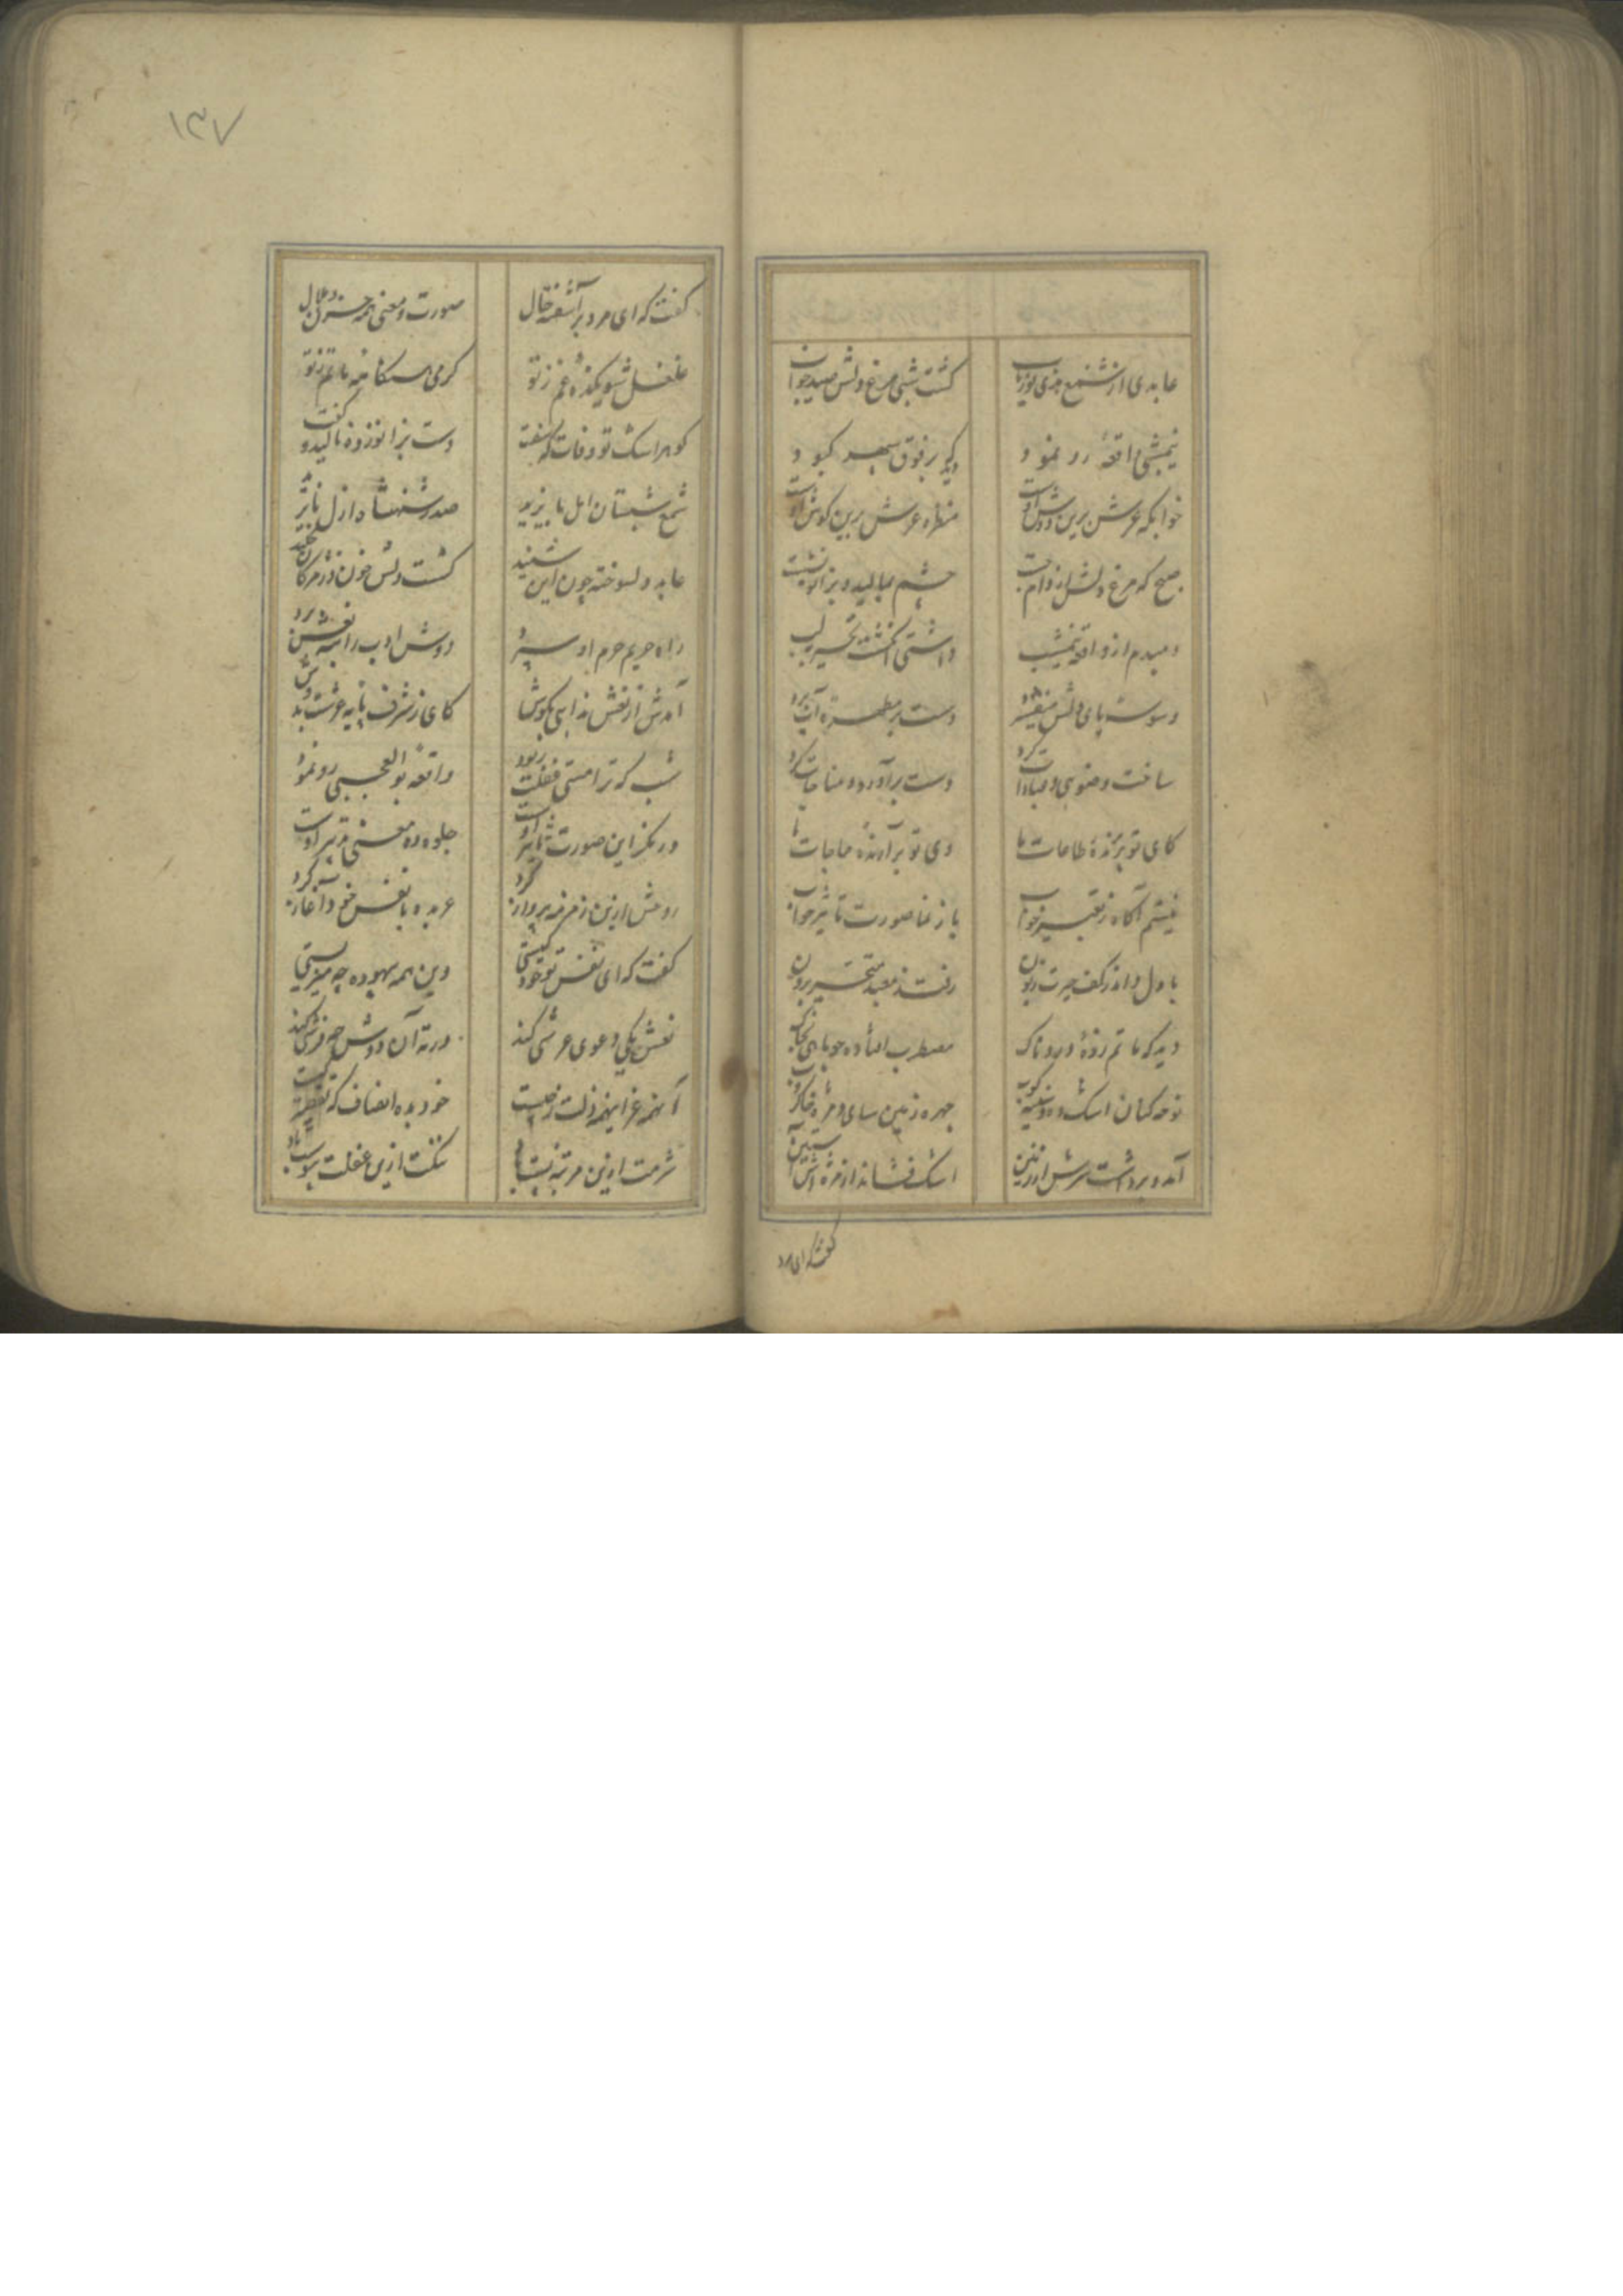 عابدی از شمع هدی نوریاب
گشت شبی مرغ دلش صید خواب
نیمشبی واقعهٔ رو نمود
که بر فوق سپهر کبود
خوابگه عرش برین دوش اوست
منظره عرش برین گوش اوست
صبح که مرغ دلش از دام جست
چشم بمالید و بزانو نشست
دمبدم از واقعه نیمشب
داشتی انگشت تحیر بلب
وسوسه پای دلش میفشرد
دست بر مطهره آب برد
ساخت وضوی و عبادات کرد
دست برآورد و مناجات کرد
کای تو پذیرندهٔ طاعات ما
وی تو برآرندهٔ حاجات ما
نیستم آگاه ز تعبیر خواب
باز نما صورت تاثیر خواب
با دل و اندر کف حیرت زبون
رفت ز معبد متحیر برون
دید که ماتم زدهٔ دردناک
مضطرب افتاده چو ماهی بخاک
نوحه کنان اشک ده و سینه کوب
چهره زمین سای و مژه خاکروب
آمد و برداشت سرش از زمین
اشک فشاند از مژه در آستین
گفت که ای مرد
۱۳۷
گفت که ای مرد بر آشفته حال
صورت و معنی همه حزن و ملال
غلغل شویکده غم ز تو
گرمی هنگامه ماتم ز تو
گوهر اشک تو وفات که سفت
دست بزانو زد و نالید و گفت
شمع شبستان ابل بایزید
صدر شهنشاه ازل بایزید
عابد دلسوخته چون این شنید
گشت دلش خون و ز مژگان چکید
راه حریم حرم او سپرد
دوش ادب را به نعشش برد
آمدش از نعش ندایی بگوش
کای ز شرف پایه عرشت بدوش
شب که ترا مستی غفلت ربود
واقعه بوالعجبی رو نمود
درنگر این صورت تاثیر اوست
جلوه ده معنی تعبیر اوست
روحش ازین زمزمه پرواز کرد
عربده با نفس خود آغاز کرد
گفت که ای نفس تو خود کیستی
وین همه بیهوده چه میزیستی
نعش یکی دعوی عرشی کند
ورنه آن دوش چه فرشی کند
آنهمه عز اینهمه ذلت ز چیست
خود بده انصاف که تقصیر کیست
شرمت ازین مرتبه پست باد
ننگت ازین غفلت